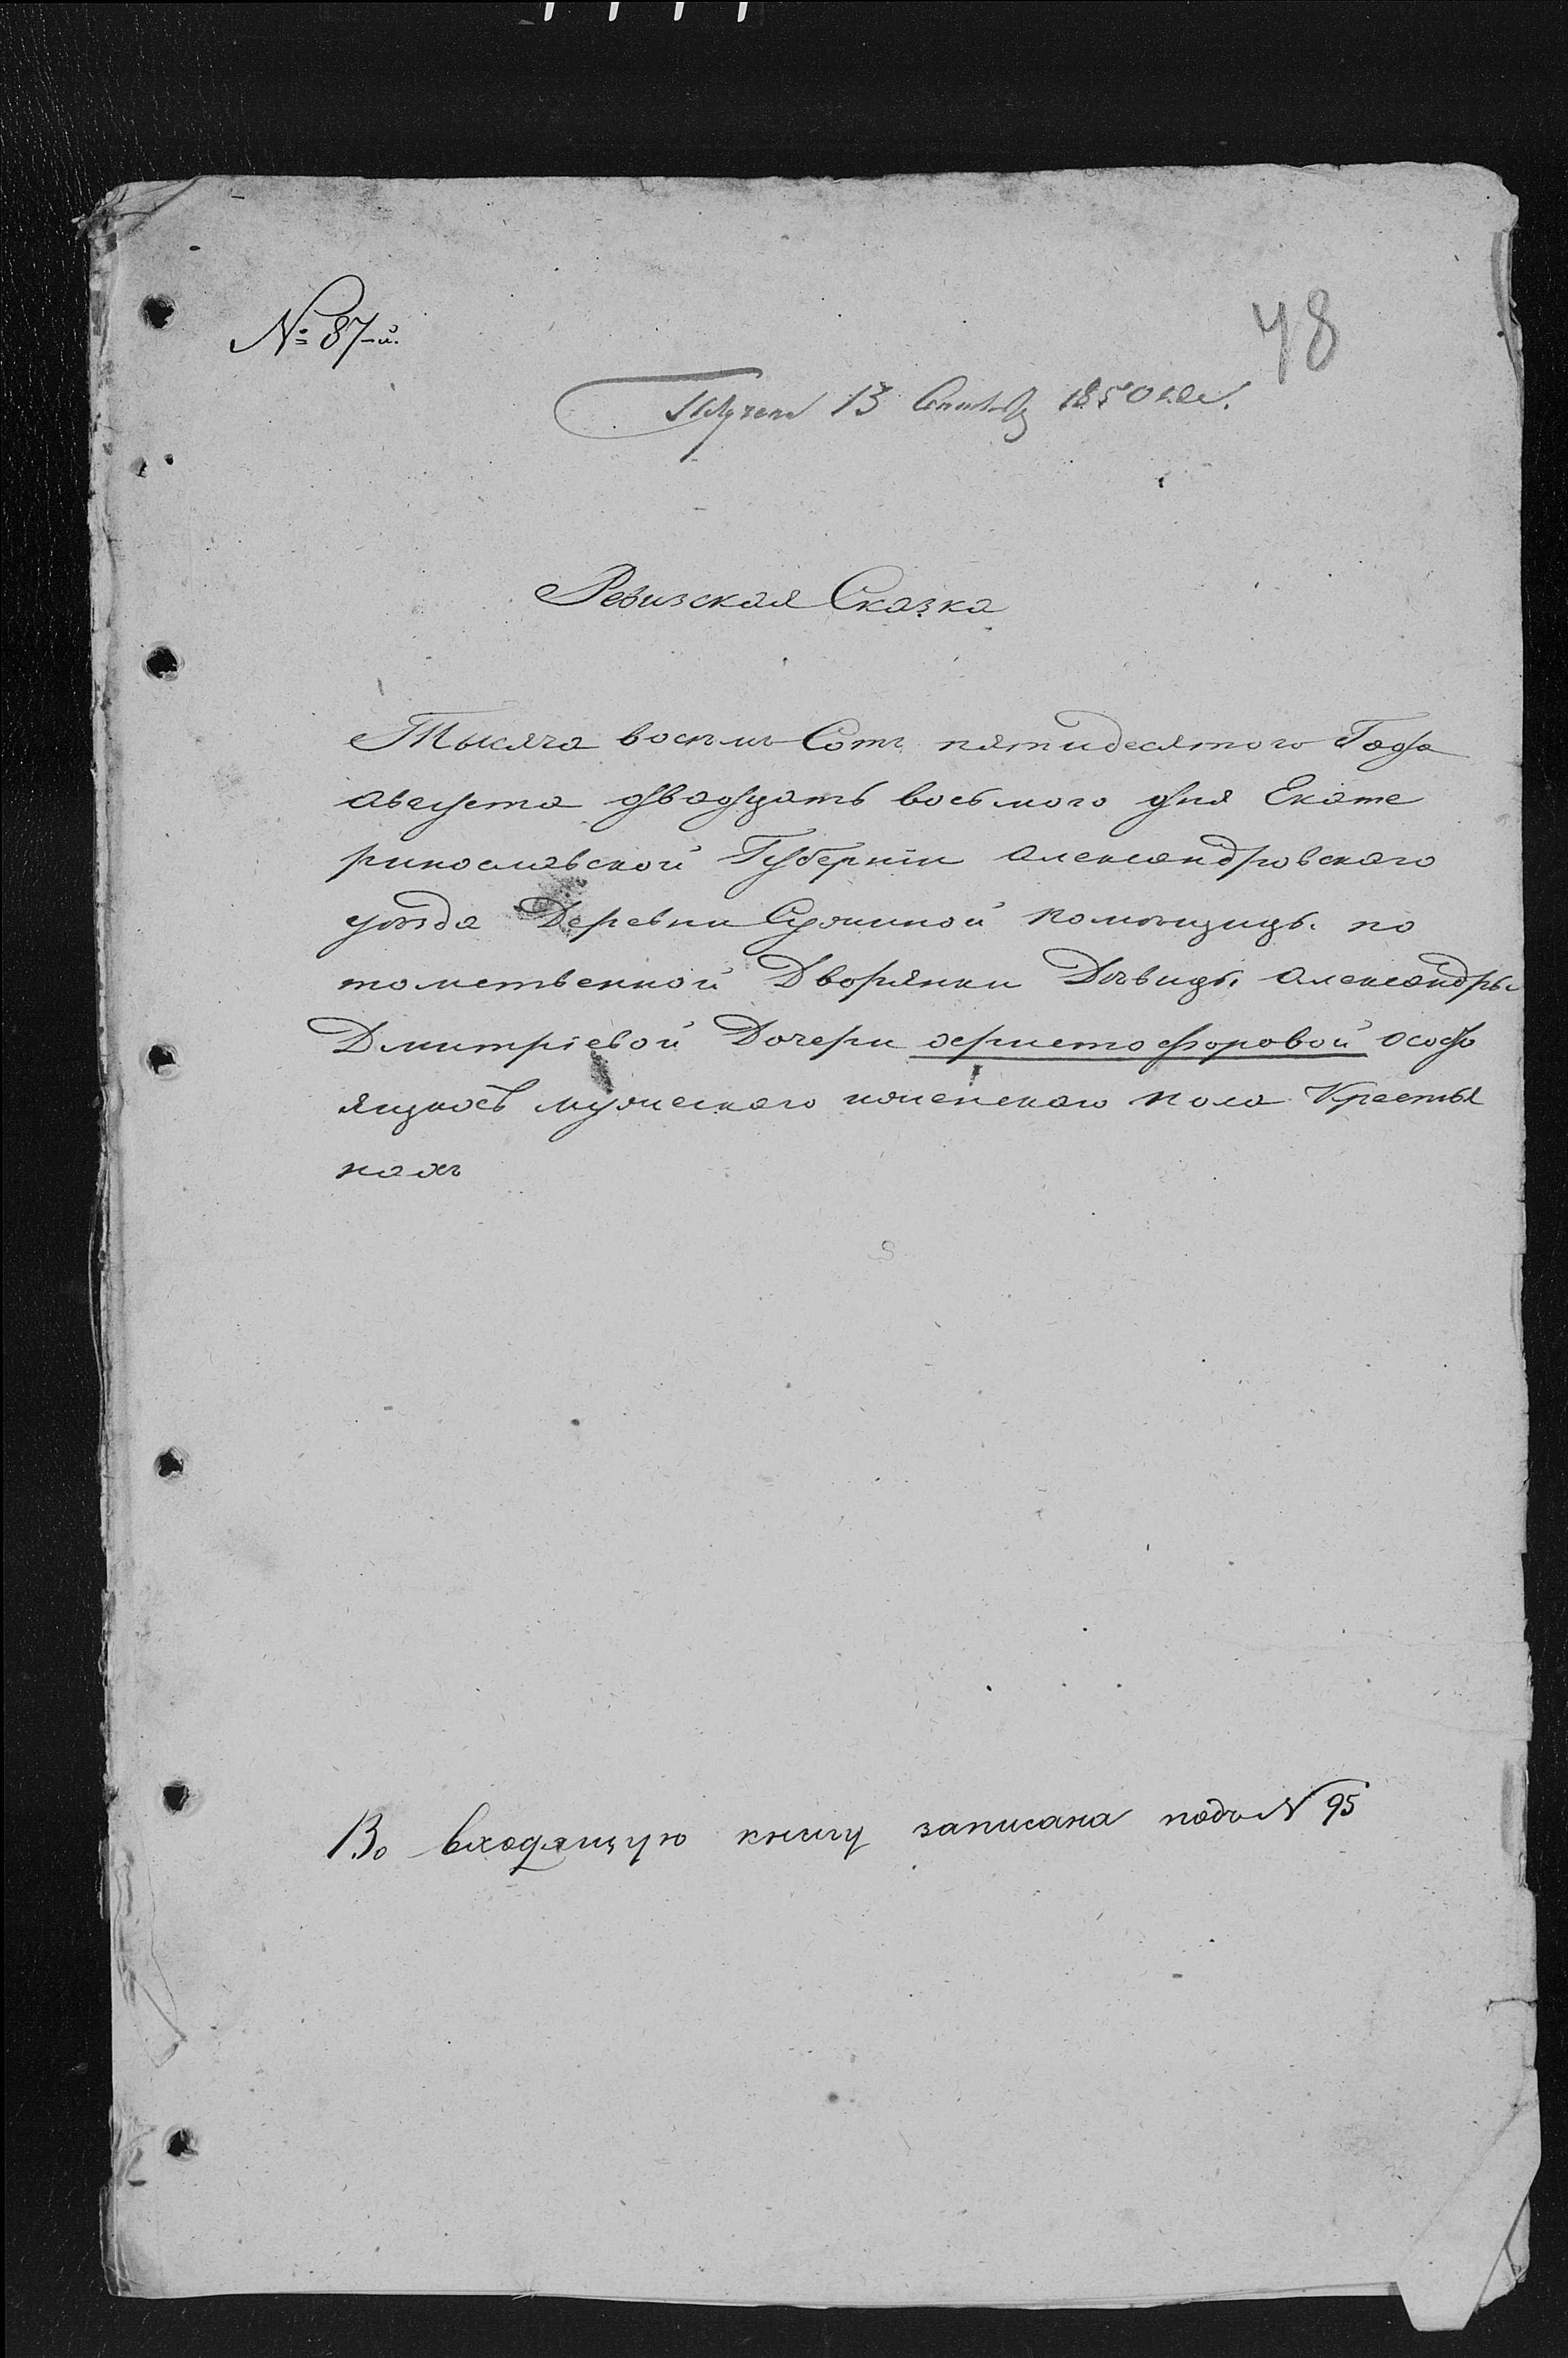 № 87-й.
48
Получена 13 Сентяб 1850 года.
Ревизская Сказка
Тысяча восемь Сотъ пятидесятого Года
августа двадцать восьмого дня Екате
ринославской Губернiи александровского
уѣзда Деревни помѣщицы по
томственной Дворянки Дѣвицы александры
Дмитрiевой Дочери христофоровой о состо
ящихъ мужеска и женского пола Крестья
нахъ
Во входящую книгу записана подъ N 95